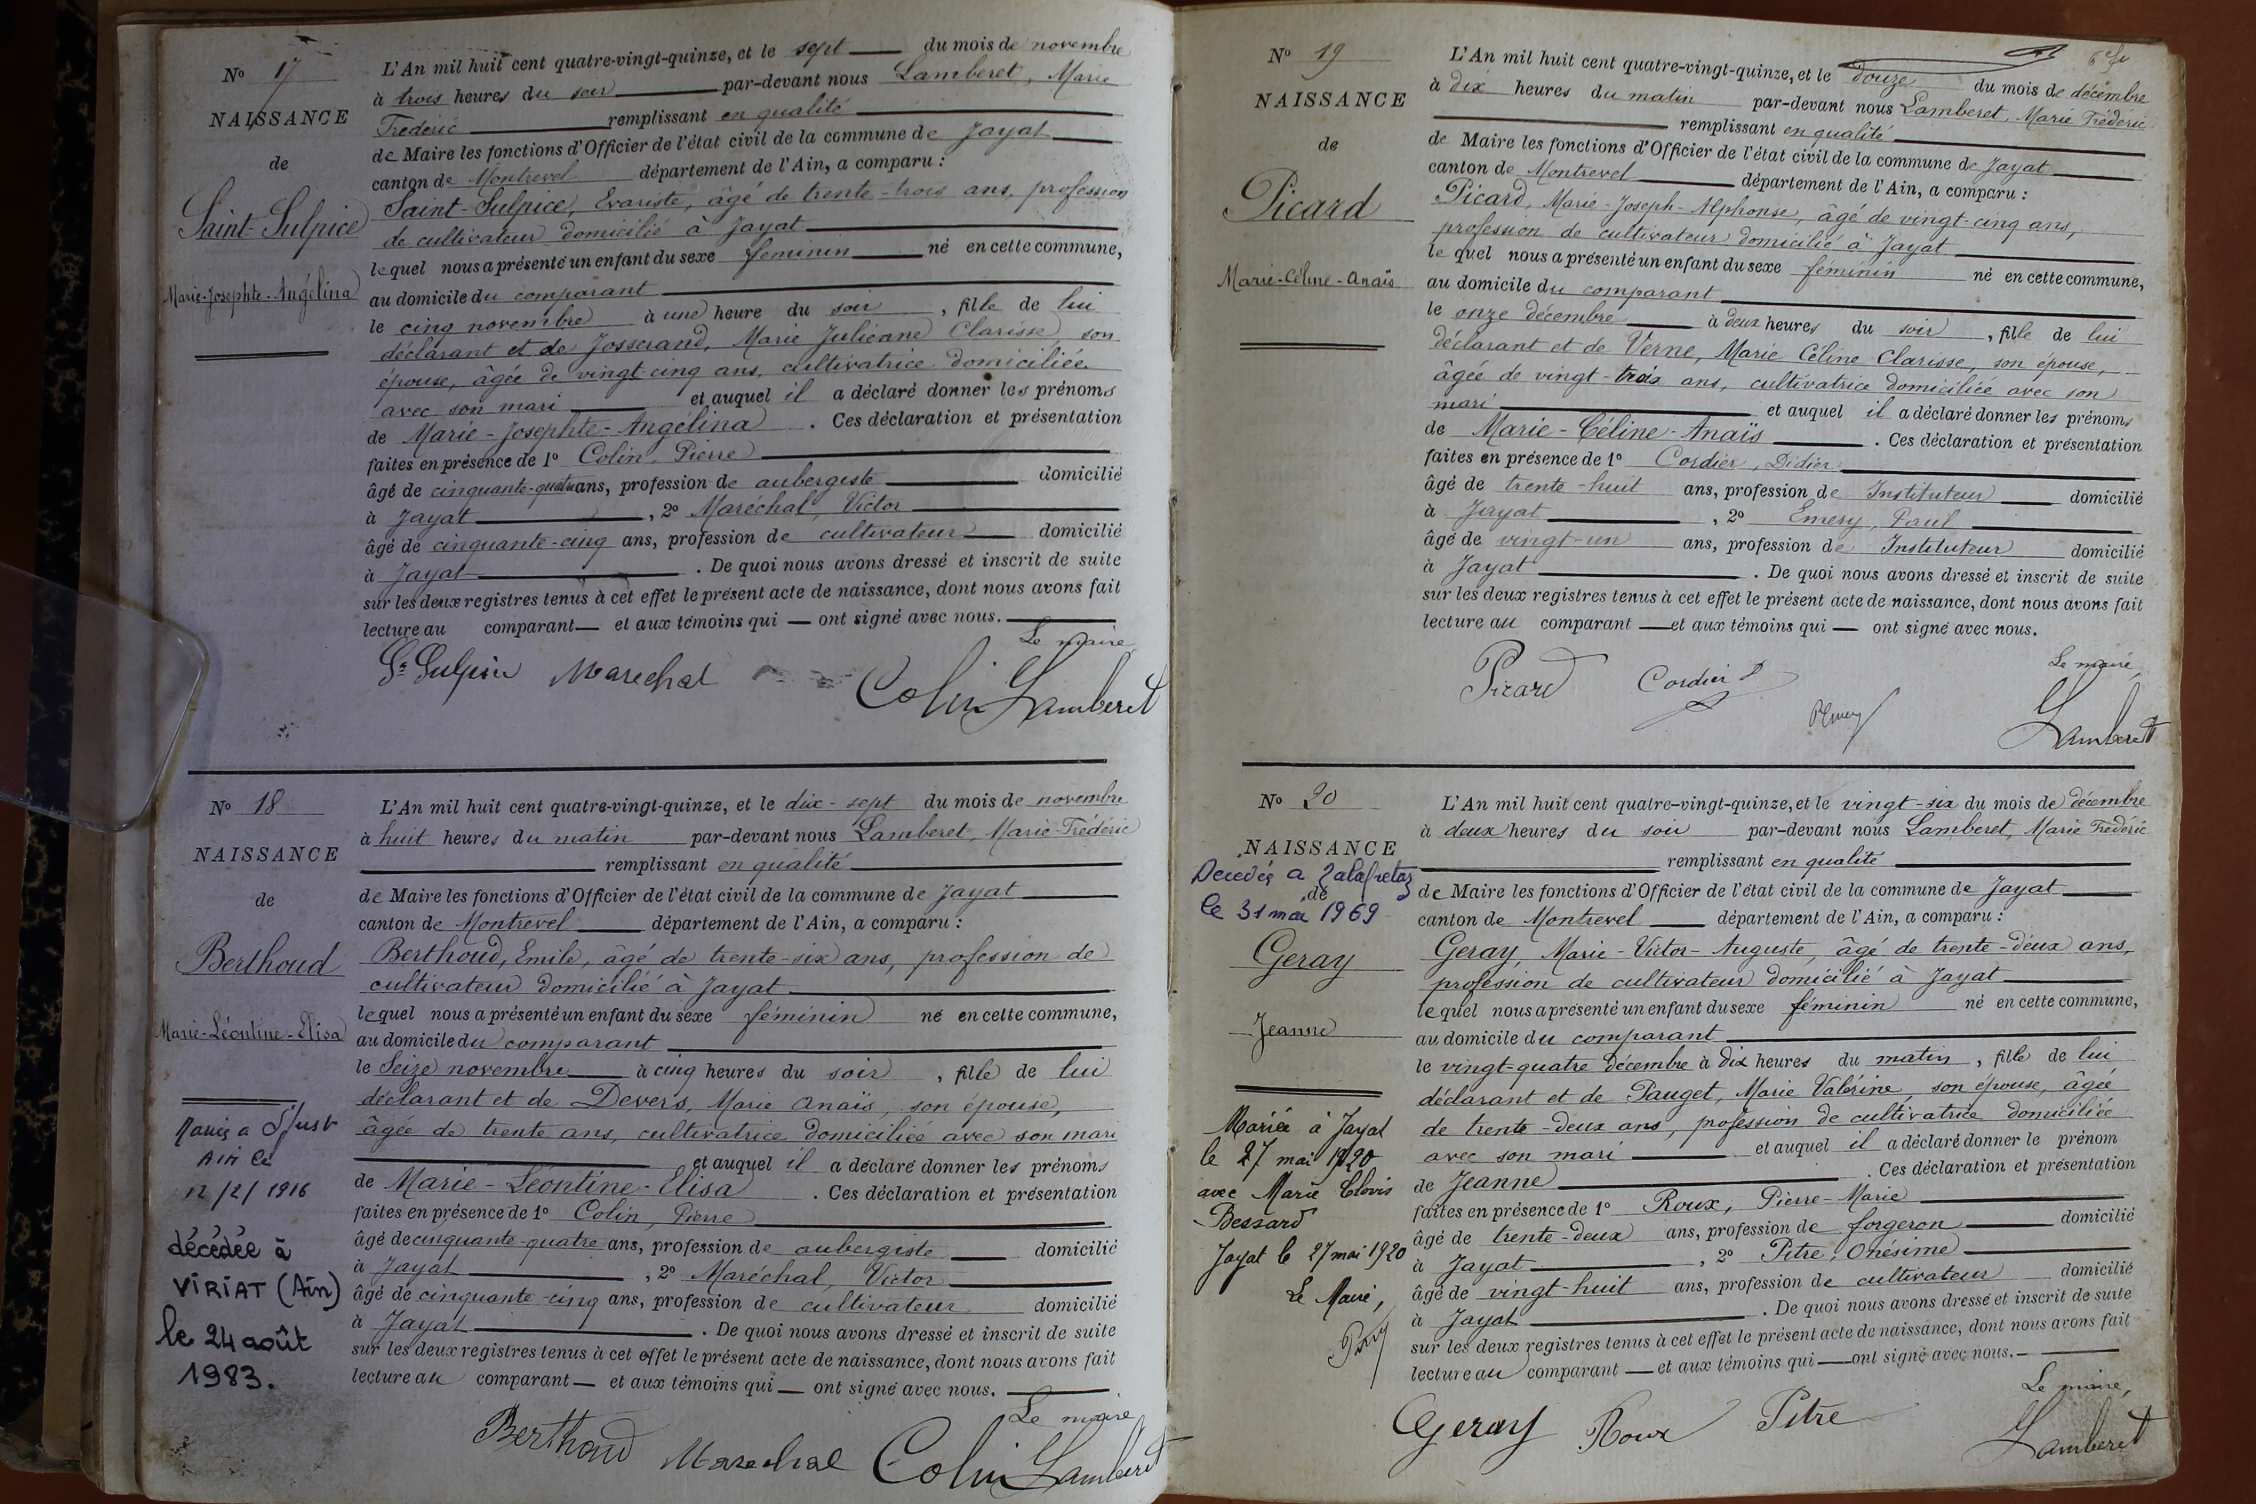 N° 17
NAISSANCE
de
Saint-Sulpice
Marie-Josephte-Angélina
L'An mil huit cent quatre-vingt-quinze, et le sept du mois de novembre
à trois heures du soir par-devant nous Lamberet, Marie
Frédéric remplissant en qualité
de Maire les fonctions d'Officier de l'état civil de la commune de Jayat
canton de Montrevel département de l'Ain, a comparu :
Saint-Sulpice, Evariste, âgé de trente-trois ans, profession
de cultivateur domicilié à Jayat
lequel nous a présenté un enfant du sexe féminin né en cette commune,
au domicile du comparant
le cinq novembre à une heure du soir, fille de lui
déclarant et de Josserand, Marie Julienne Clarisse, son
épouse, âgée de vingt cinq ans, cultivatrice domiciliée
avec son mari et auquel il a déclaré donner les prénoms
de Marie-Josephte-Angélina. Ces déclaration et présentation
faites en présence de 1° Colin, Pierre
âgé de cinquante-quatre ans, profession de aubergiste domicilié
à Jayat, 2° Maréchal, Victor
âgé de cinquante-cinq ans, profession de cultivateur domicilié
à Jayat. De quoi nous avons dressé et inscrit de suite
sur les deux registres tenus à cet effet le présent acte de naissance, dont nous avons fait
lecture au comparant et aux témoins qui ont signé avec nous.
Le maire
Marechal Colin Lamberet
N° 18
NAISSANCE
de
Berthoud
Marie-Léontine-Elisa
Ain le
12/2/1916
décédée à
VIRIAT (Ain)
le 24 août
1983.
L'An mil huit cent quatre-vingt-quinze, et le dix-sept du mois de novembre
à huit heures du matin par-devant nous Lamberet, Marie-Frédéric
remplissant en qualité
de Maire les fonctions d'Officier de l'état civil de la commune de Jayat
canton de Montrevel département de l'Ain, a comparu :
Berthoud, Emile, âgé de trente-six ans, profession de
cultivateur domicilié à Jayat
lequel nous a présenté un enfant du sexe féminin né en cette commune,
au domicile du comparant
le Seize novembre à cinq heures du soir, fille de lui
déclarant et de Devers, Marie Anaïs, son épouse,
âgée de trente ans, cultivatrice domiciliée avec son mari
et auquel il a déclaré donner les prénoms
de Marie-Léontine-Elisa. Ces déclaration et présentation
faites en présence de 1° Colin, Pierre
âgé de cinquante-quatre ans, profession de aubergiste domicilié
à Jayat, 2° Maréchal, Victor
âgé de cinquante-cinq ans, profession de cultivateur domicilié
à Jayat. De quoi nous avons dressé et inscrit de suite
sur les deux registres tenus à cet effet le présent acte de naissance, dont nous avons fait
lecture au comparant et aux témoins qui ont signé avec nous.
Le maire
Berthoud Marechal Colin Lamberet
N° 19
NAISSANCE
de
Picard
Marie-Céline-Anaïs
L'An mil huit cent quatre-vingt-quinze, et le douze du mois de décembre
à dix heures du matin par-devant nous Lamberet, Marie Fréderic
remplissant en qualité
de Maire les fonctions d'Officier de l'état civil de la commune de Jayat
canton de Montrevel département de l'Ain, a comparu :
Picard, Marie-Joseph-Alphonse, âgé de vingt-cinq ans,
profession de cultivateur domicilié à Jayat
le quel nous a présenté un enfant du sexe féminin né en cette commune,
au domicile du comparant
le onze décembre à deux heures du soir, fille de lui
déclarant et de Verne, Marie Céline Clarisse, son épouse,
âgée de vingt-trois ans, cultivatrice domiciliée avec son
mari et auquel il a déclaré donner les prénoms
de Marie-Céline-Anaïs. Ces déclaration et présentation
faites en présence de 1° Cordier, Didier
âgé de trente-huit ans, profession de Instituteur domicilié
à Jayat, 2° Emery, Paul
âgé de vingt-un ans, profession de Instituteur domicilié
à Jayat. De quoi nous avons dressé et inscrit de suite
sur les deux registres tenus à cet effet le présent acte de naissance, dont nous avons fait
lecture au comparant et aux témoins qui ont signé avec nous.
Le maire
Picard Cordier D PEmery Lamberet
N° 20
NAISSANCE
de
le 31 mai 1969
Geray
Jeanne
Mariée à Jayat
le 27 mai 1920
avec Marie Clovis
Bessard
Jayat le 27 mai 1920
Le Maire,
L'An mil huit cent quatre-vingt-quinze, et le vingt-six du mois de décembre
à deux heures du soir par-devant nous Lamberet, Marie Frédéric
remplissant en qualité
de Maire les fonctions d'Officier de l'état civil de la commune de Jayat
canton de Montrevel département de l'Ain, a comparu :
Geray, Marie-Victor-Auguste, âgé de trente-deux ans,
profession de cultivateur domicilié à Jayat
lequel nous a présenté un enfant du sexe féminin né en cette commune,
au domicile du comparant
le vingt-quatre décembre à dix heures du matin, fille de lui
déclarant et de Pauget, Marie Valérine, son épouse, âgée
de trente-deux ans, profession de cultivatrice domiciliée
avec son mari et auquel il a déclaré donner le prénom
de Jeanne. Ces déclaration et présentation
faites en présence de 1° Roux, Pierre-Marie
âgé de trente-deux ans, profession de forgeron domicilié
à Jayat, 2° Pitre, Onésime
âgé de vingt-huit ans, profession de cultivateur domicilié
à Jayat. De quoi nous avons dressé et inscrit de suite
sur les deux registres tenus à cet effet le présent acte de naissance, dont nous avons fait
lecture au comparant et aux témoins qui ont signé avec nous.
Le maire,
Geray Roux Pitre Lamberet